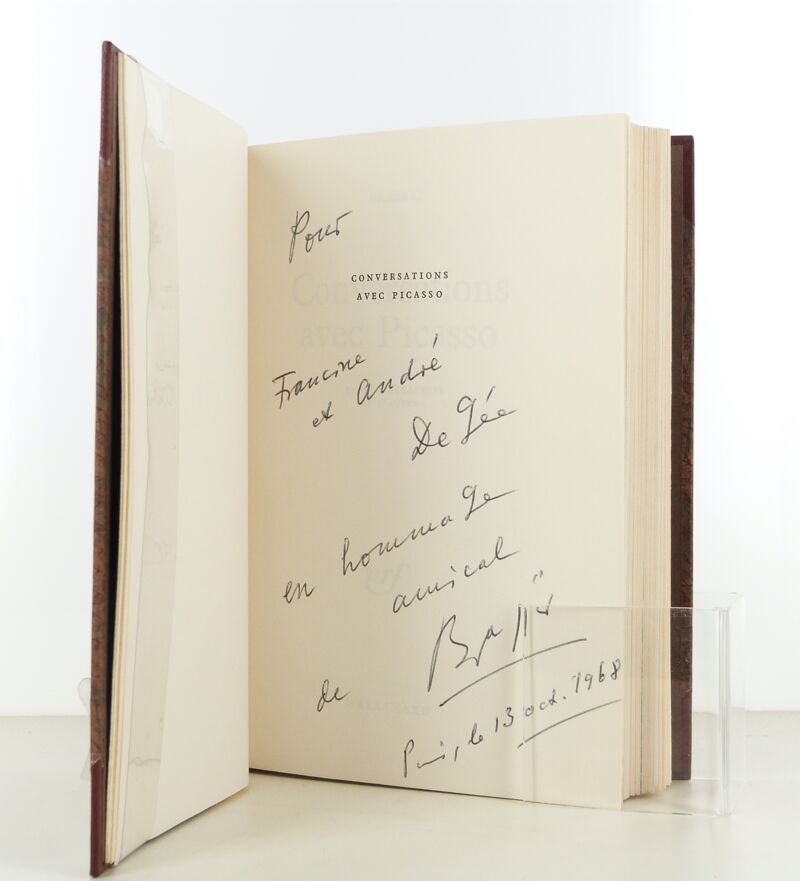 Pour
CONVERSATIONS
AVEC PICASSO
Francine
et André
De Gée
en hommage
amical
de Brassaï
Paris, le 13 oct. 1968
BRASSAÏ
Conversations
avec Picasso
nrf
GALLIMARD